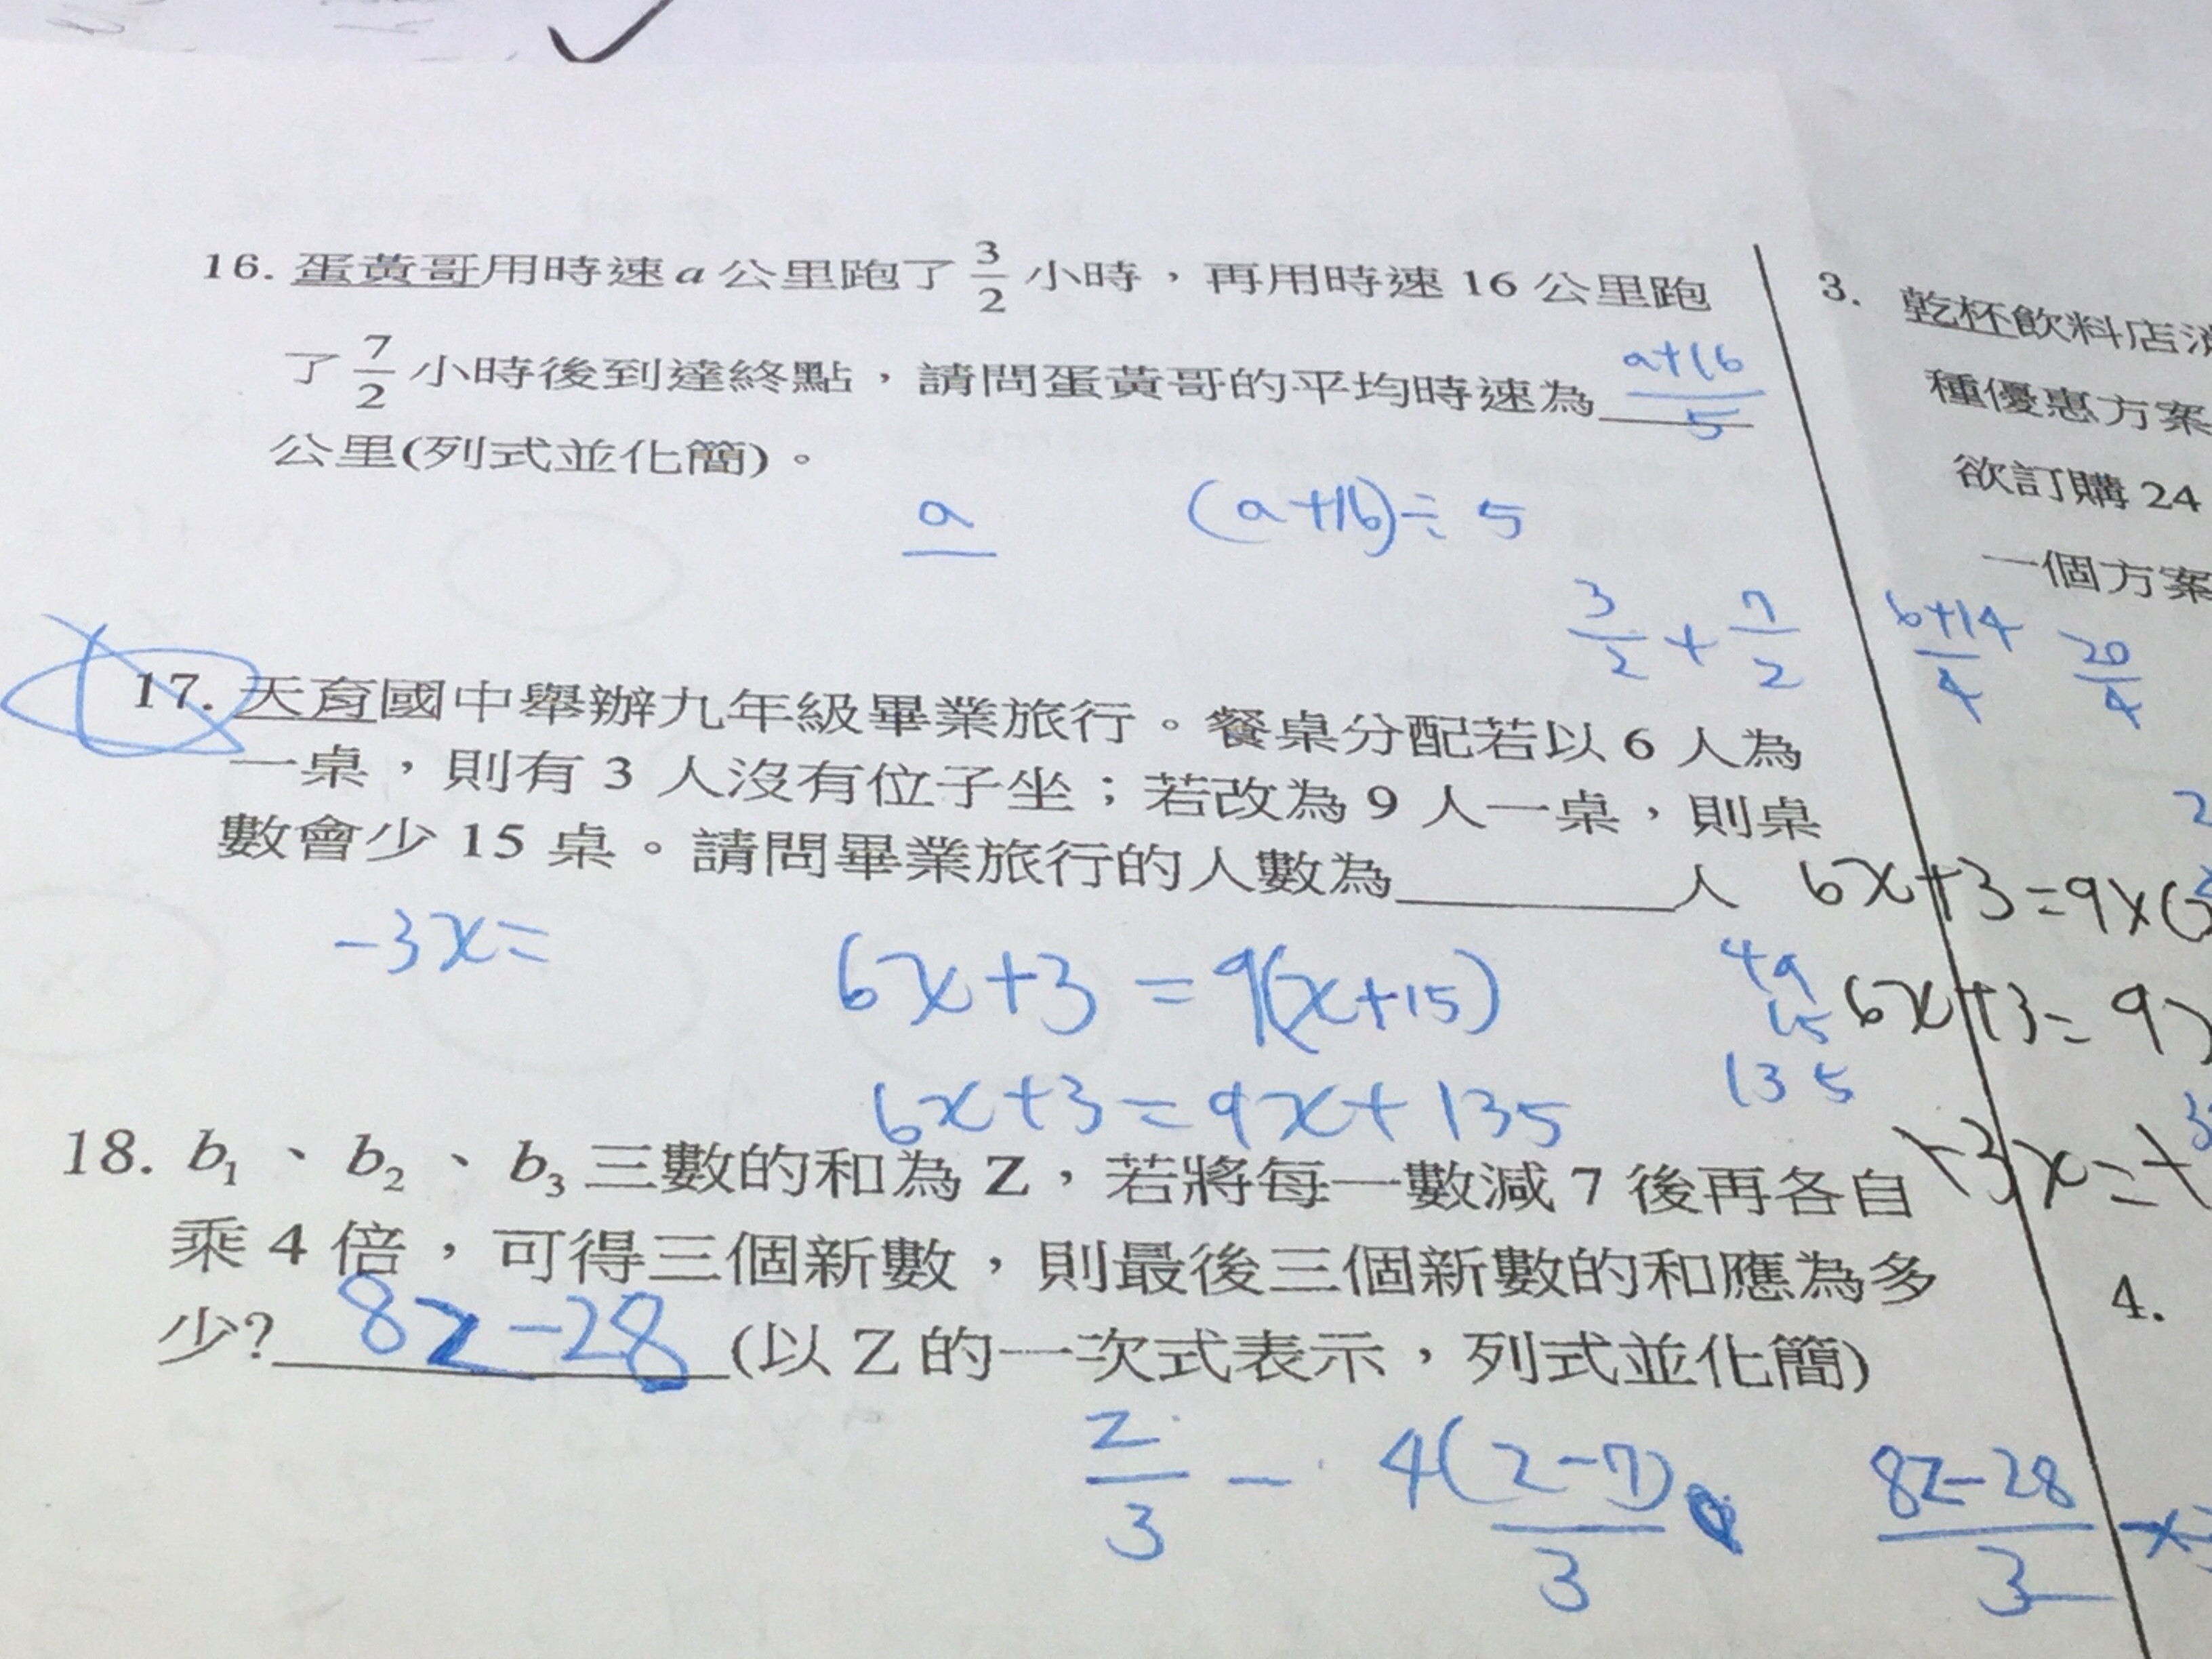 16. 蛋黃哥用時速 a 公里跑了 3/2 小時，再用時速 16 公里跑
了 7/2 小時後到達終點，請問蛋黃哥的平均時速為 (a+16)/5
公里(列式並化簡)。
a
(a+16)÷5
3/2 + 7/2
6+14/4 20/4
17. 天育國中舉辦九年級畢業旅行。餐桌分配若以 6 人為
一桌，則有 3 人沒有位子坐；若改為 9 人一桌，則桌
數會少 15 桌。請問畢業旅行的人數為________人
-3x=
6x+3=9(x+15)
6x+3=9x+135
135
18. b₁、b₂、b₃ 三數的和為 Z，若將每一數減 7 後再各自
乘 4 倍，可得三個新數，則最後三個新數的和應為多
少? 8z-28 (以 Z 的一次式表示，列式並化簡)
z/3 - 4(z-7)/3
8z-28/3
3. 乾杯飲料店
種優惠方案
欲訂購 24
一個方案
6x+3=9x(
6x+3=9
-3x=
4.